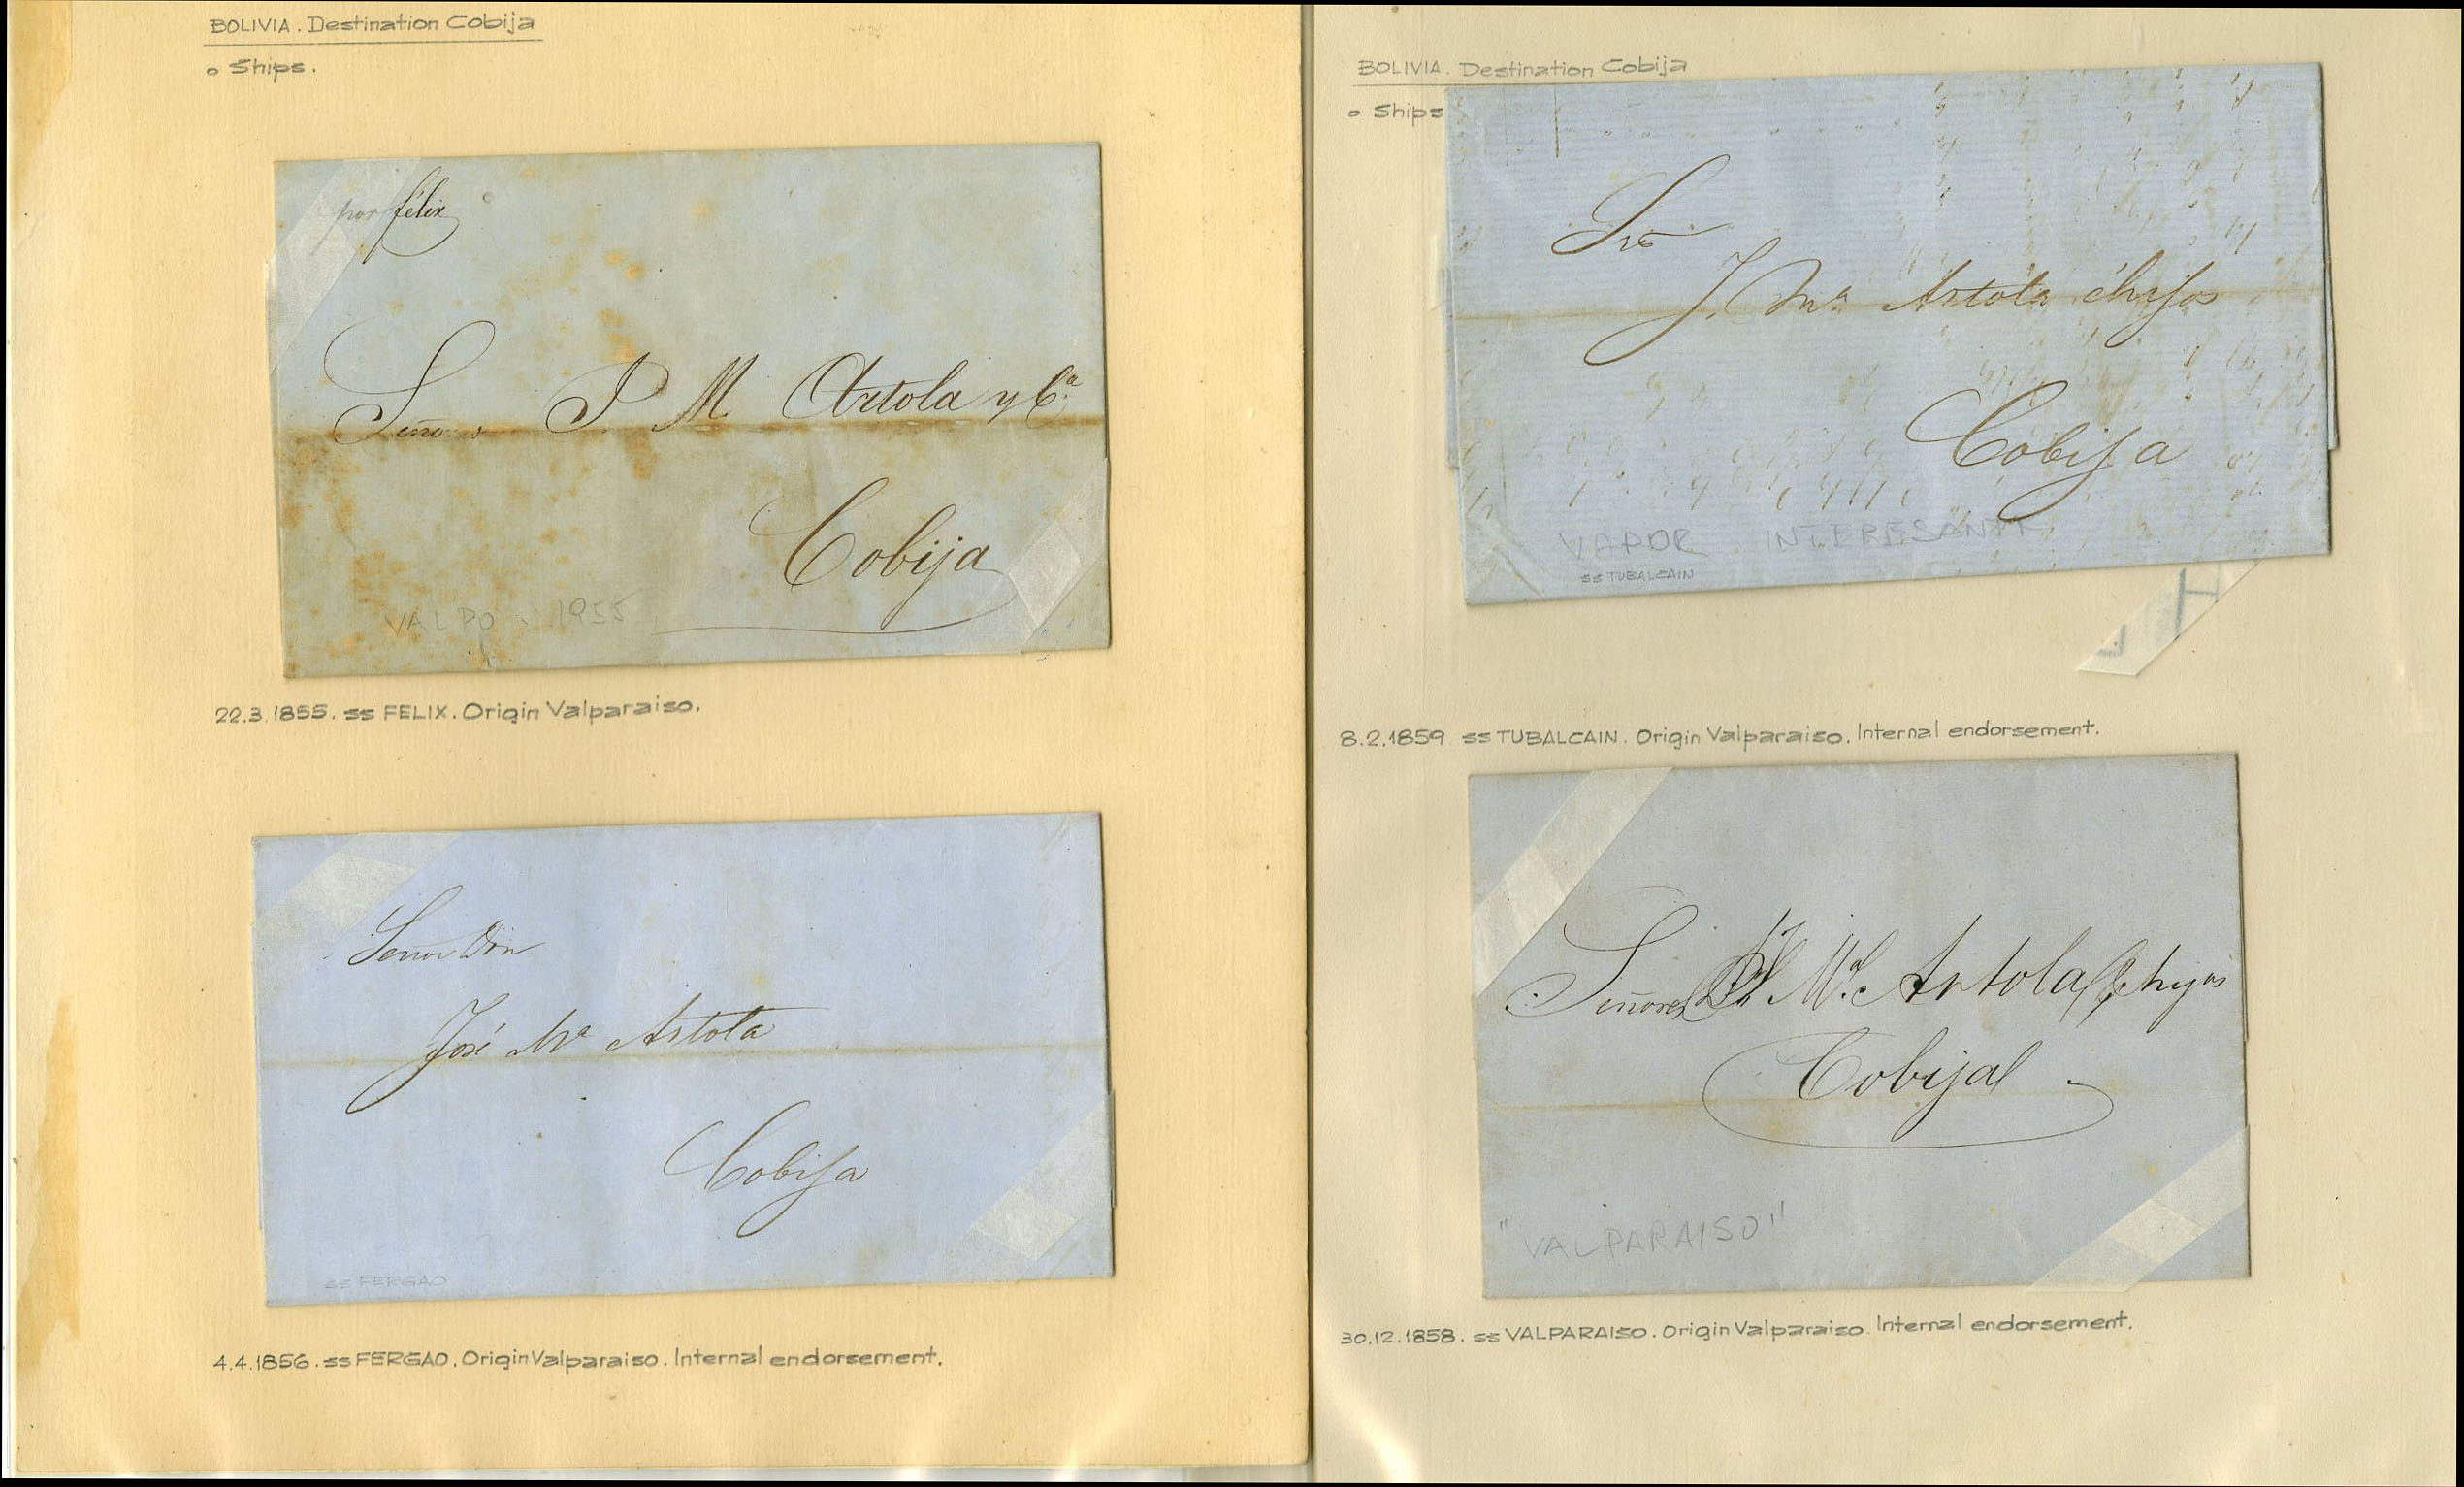 BOLIVIA. Destination Cobija
o Ships.
por félix
Señores J. M. Artola y Cª
Cobija
VALPO 1955
22.3.1855. ss FELIX. Origin Valparaiso.
Señor Don
José Mª Artola
Cobija
ss FERGAO
4.4.1856. ss FERGAO. Origin Valparaiso. Internal endorsement.
BOLIVIA. Destination Cobija
o Ships
J. Mª Artola é hijos
Cobija
VAPOR INTERESANTE
ss TUBALCAIN
8.2.1859 ss TUBALCAIN. Origin Valparaiso. Internal endorsement.
Señores J. Mª Artola é hijos
Cobija
"VALPARAISO"
30.12.1858. ss VALPARAISO. Origin Valparaiso. Internal endorsement.